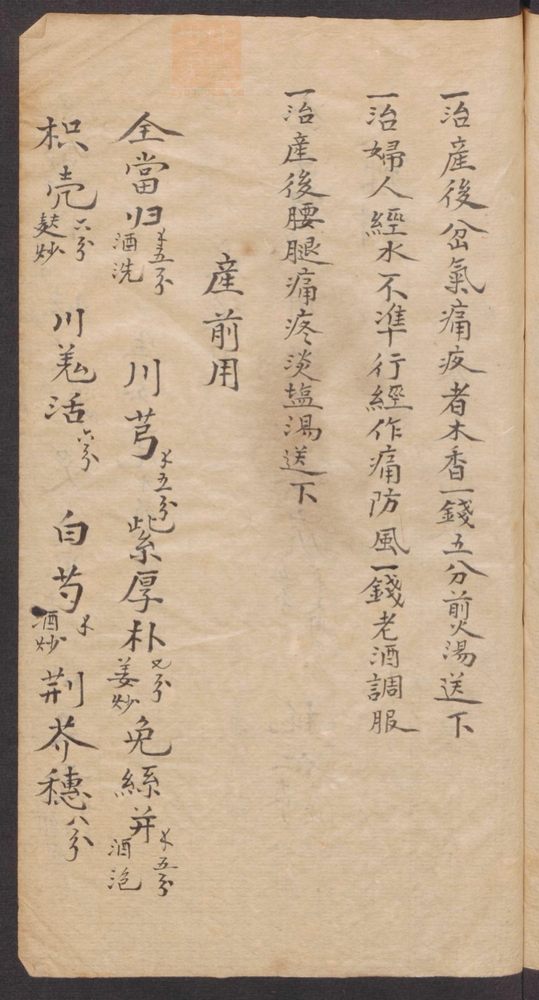 一治產後岔氣痛疚者木香一錢五分煎湯送下
一治婦人經水不準行經作痛防風一錢老酒調服
一治產後腰腿痛疼淡塩湯送下
產前用
全當归五分酒洗 川芎五分 紫厚朴七分姜炒 免絲并五分酒泡
枳壳六分麸炒 川羗活六分 白芍酒炒 荆芥穗八分